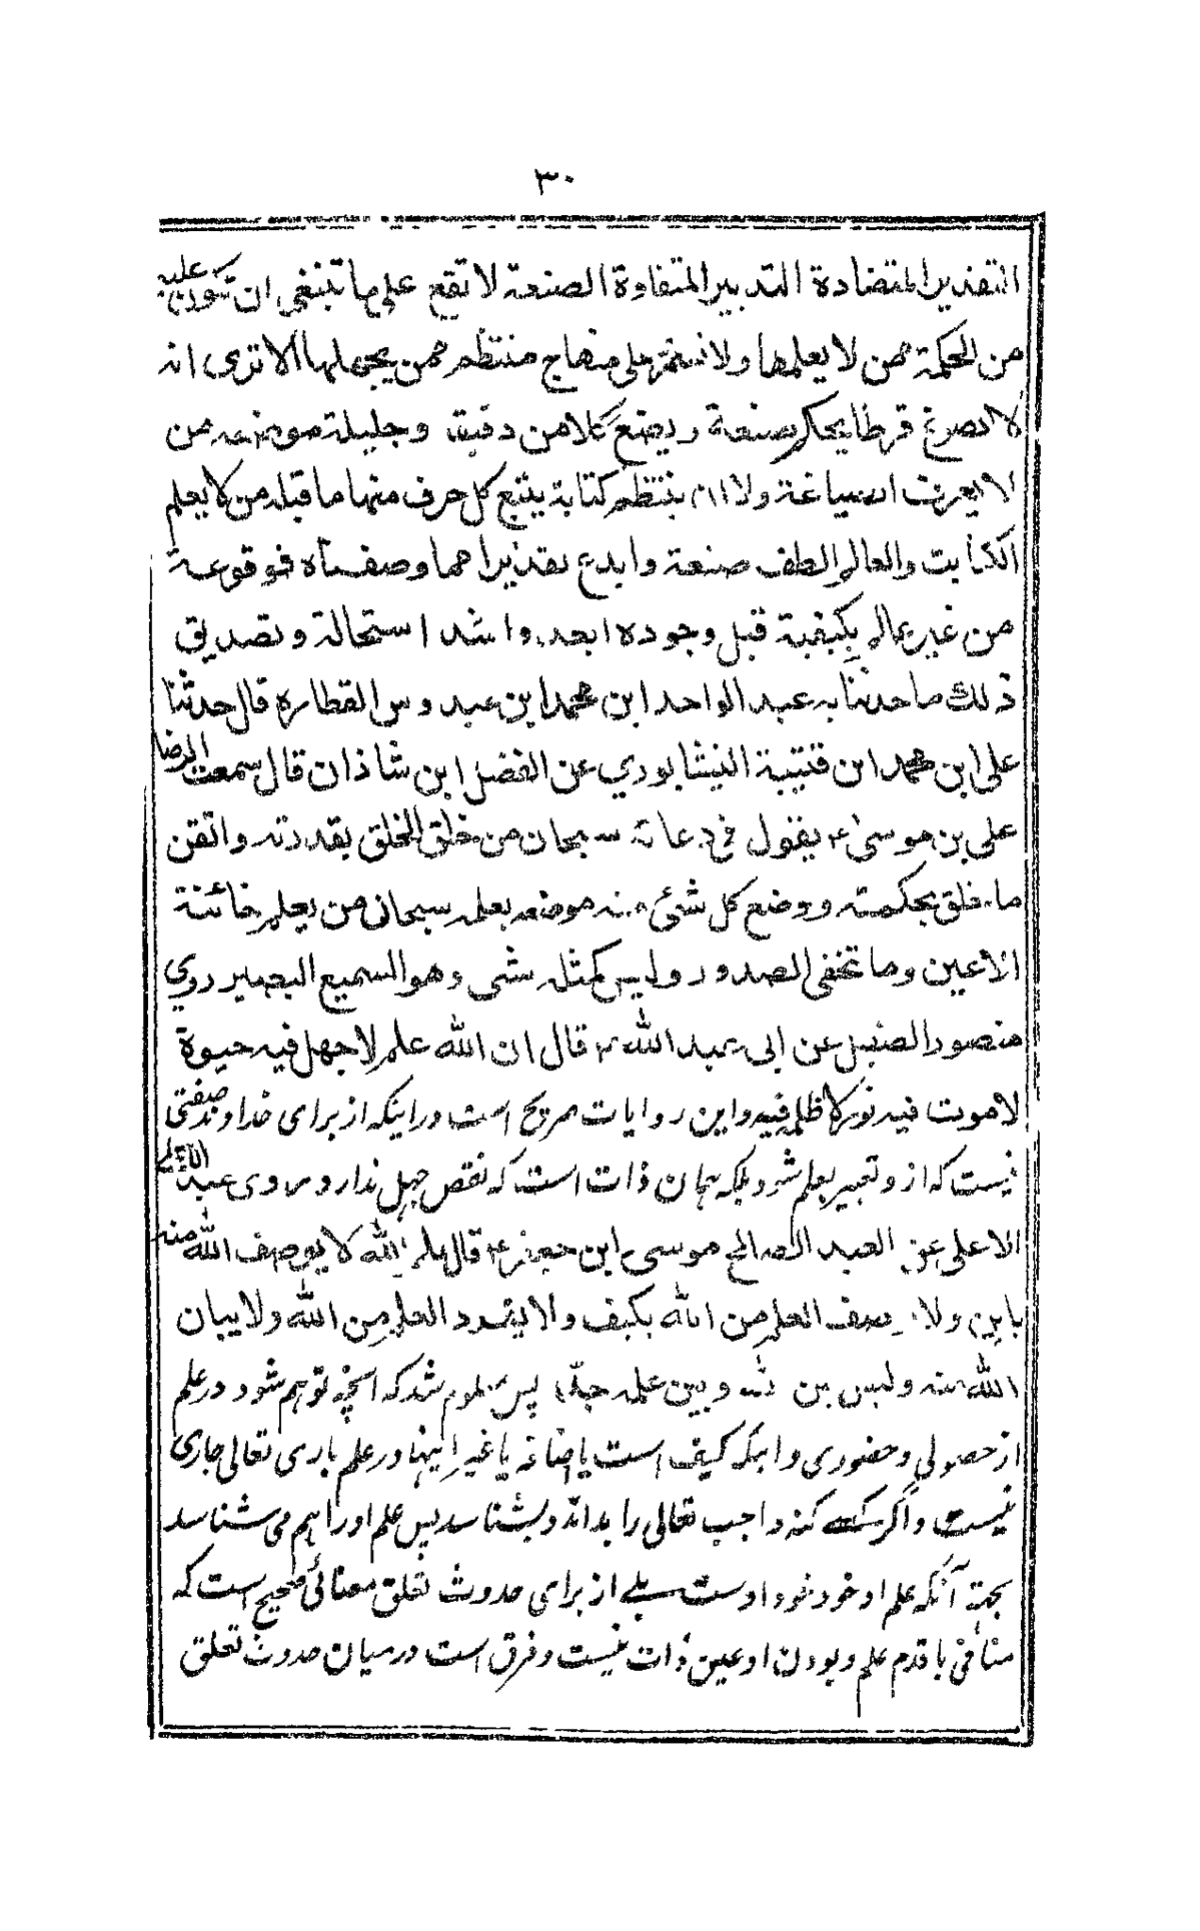 ٣٠
التقدير المتضادة التدبير المتفاوتة الصنعة لا تقع على ما تنبغى ان تكون عليه
من الحكمة ممن لا يعلمها ولا تستمر على منهاج منتظم ممن يجهلها الا ترى انه
لا يصوغ قرطا يحكم صنعة و يضع كلا من دقيق و جليلة موضعه من
لا يعرف الصياغة ولا ينتظم كتابة يتبع كل حرف منها ما قبله من لا يعلم
الكتابت والعالم الطف صنعة وابدع تقديرا مما وصفناه فوقوعه
من غير عالم بكيفية قبل وجوده ابعد واشد استحالة و تصديق
ذلك ما حدثنا به عبد الواحد ابن محمد ابن عبدوس القطاره قال حدثنا
على ابن محمد ابن قتيبة النيشابوري عن الفضل ابن شاذان قال سمعت الرضا
على بن موسىٰ ع يقول فى دعائه سبحان من خلق الخلق بقدرته واتقن
ما خلق بحكمته ووضع كل شئ منه موضعه بعلمه سبحان من يعلم خائنة
الاعين وما تخفى الصدور وليس كمثله شى وهو السميع البصير روي
منصور الصيقل عن ابى عبد الله ع قال ان الله علم لا جهل فيه حيوة
لا موت فيه نور لا ظلم فيه واين روايات صريح است در اينكه از براى خداوند صفتى
نيست كه از و تعبير بعلم شود بلكه همان ذات است كه نقص جهل ندارد و روى عبد
الاعلى عن العبد الصالح موسى ابن جعفر ع قال علم الله لا يوصف الله منه
باين ولا يوصف العلم من الله بكيف ولا يفرد العلم من الله ولا يبان
الله منه وليس بين الله وبين علمه حدّا پس معلوم شد كه آنچه توهم شود در علم
از حصولى و حضورى و اينكه كيف است يا اضافه يا غير اينها در علم بارى تعالى جارى
نيست و اگر كسے كنه واجب تعالى را بداند و بشناسد پس علم او را هم مى شناسد
بجهة آنكه علم او خود خود اوست بلے از براى حدوث تعلق معنائى صحيح است كه
منافى با قدم علم و بودن او عين ذات نيست و فرق است در ميان حدوث تعلق